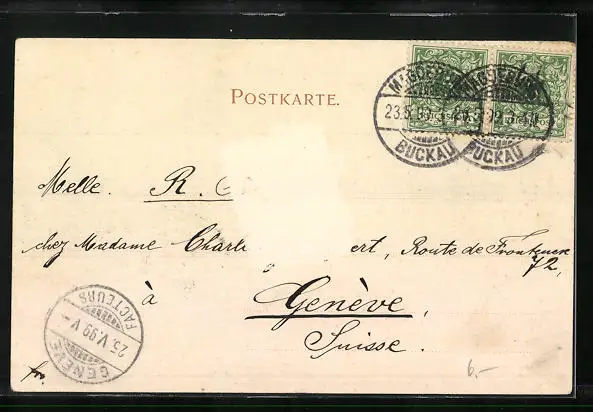 POSTKARTE.
MAGDEBURG
23.5.99
BUCKAU
MAGDEBURG
BUCKAU
Melle. R.
chez Madame Charl ert, Route de Frontenex
72,
à Genève,
Suisse.
GENÈVE
25.V.99 V
FACTEURS
fr.
6,-